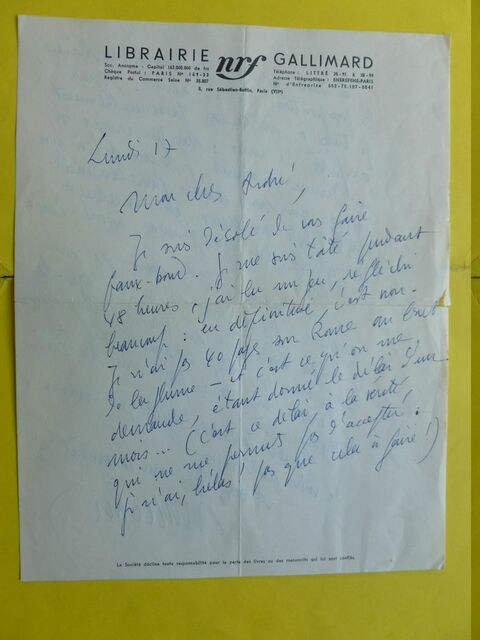 LIBRAIRIE nrf GALLIMARD
Soc. Anonyme : Capital 162.000.000 de frs
Chèque Postal : PARIS N° 169-33
Registre du Commerce Seine N° 35.807
Téléphone : LITTRÉ 28-91 à 28-99
Adresse Télégraphique : ENEREFENE-PARIS
N° d'Entreprise
5, rue Sébastien-Bottin, Paris (VIIe)
Lundi 17
Mon cher André,
Je suis désolé de vous faire
faux-bond. Je me suis tâté pendant
48 heures, j'ai lu un peu, réfléchi
beaucoup : en définitive, c'est non.
Je n'ai pas 40 pages sur Rome au bout
de la plume — et c'est ce qu'on me
demande, étant donné le délai d'un
mois... (C'est ce délai, à la vérité,
qui ne me permet pas d'accepter :
je n'ai, hélas ! pas que cela à faire !)
La Société décline toute responsabilité pour la perte des livres ou des manuscrits qui lui sont confiés.